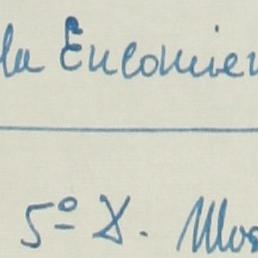 la Encomien
5º X. Mos